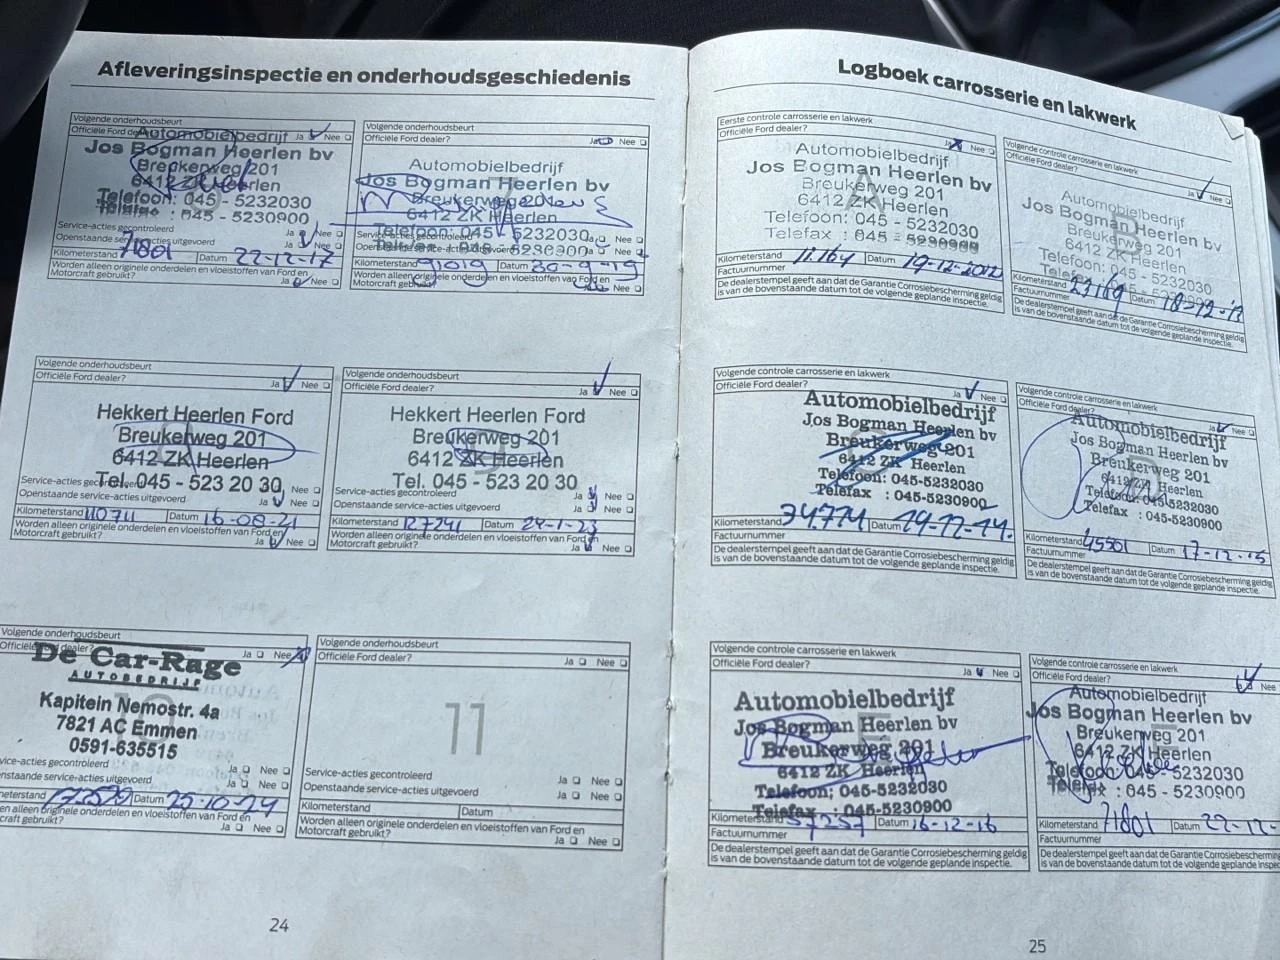 Afleveringsinspectie en onderhoudsgeschiedenis
Volgende onderhoudsbeurt
Officiële Ford dealer? Ja Nee
Automobielbedrijf
Jos Bogman Heerlen bv
Breukerweg 201
6412 ZK Heerlen
Telefoon: 045 - 5232030
Telefax : 045 - 5230900
Service-acties gecontroleerd Ja Nee
Openstaande service-acties uitgevoerd Ja Nee
Kilometerstand 71801 Datum 22-12-17
Worden alleen originele onderdelen en vloeistoffen van Ford en
Motorcraft gebruikt? Ja Nee
Volgende onderhoudsbeurt
Officiële Ford dealer? Ja Nee
Automobielbedrijf
Jos Bogman Heerlen bv
Breukerweg 201
6412 ZK Heerlen
Telefoon: 045 - 5232030
Telefax : 045 - 5230900
Service-acties gecontroleerd Ja Nee
Openstaande service-acties uitgevoerd Ja Nee
Kilometerstand 91019 Datum 30-9-19
Worden alleen originele onderdelen en vloeistoffen van Ford en
Motorcraft gebruikt? Ja Nee
Volgende onderhoudsbeurt
Officiële Ford dealer? Ja Nee
Hekkert Heerlen Ford
Breukerweg 201
6412 ZK Heerlen
Tel. 045 - 523 20 30
Service-acties gecontroleerd Ja Nee
Openstaande service-acties uitgevoerd Ja Nee
Kilometerstand 110711 Datum 16-08-21
Worden alleen originele onderdelen en vloeistoffen van Ford en
Motorcraft gebruikt? Ja Nee
Volgende onderhoudsbeurt
Officiële Ford dealer? Ja Nee
Hekkert Heerlen Ford
Breukerweg 201
6412 ZK Heerlen
Tel. 045 - 523 20 30
Service-acties gecontroleerd Ja Nee
Openstaande service-acties uitgevoerd Ja Nee
Kilometerstand 127241 Datum 24-1-23
Worden alleen originele onderdelen en vloeistoffen van Ford en
Motorcraft gebruikt? Ja Nee
Volgende onderhoudsbeurt
Officiële Ford dealer? Ja Nee
De Car-Rage
AUTOBEDRIJF
10
Kapitein Nemostr. 4a
7821 AC Emmen
0591-635515
vice-acties gecontroleerd Ja Nee
enstaande service-acties uitgevoerd Ja Nee
meterstand Datum 25-10-24
en alleen originele onderdelen en vloeistoffen van Ford en
craft gebruikt? Ja Nee
Volgende onderhoudsbeurt
Officiële Ford dealer? Ja Nee
11
Service-acties gecontroleerd Ja Nee
Openstaande service-acties uitgevoerd Ja Nee
Kilometerstand Datum
Worden alleen originele onderdelen en vloeistoffen van Ford en
Motorcraft gebruikt? Ja Nee
24
Logboek carrosserie en lakwerk
Eerste controle carrosserie en lakwerk
Officiële Ford dealer? Ja Nee
Automobielbedrijf
Jos Bogman Heerlen bv
Breukerweg 201
6412 ZK Heerlen
Telefoon: 045 - 5232030
Telefax : 045 - 5230900
Kilometerstand 11.164 Datum 19-12-2012
Factuurnummer
De dealerstempel geeft aan dat de Garantie Corrosiebescherming geldig
is van de bovenstaande datum tot de volgende geplande inspectie.
Volgende controle carrosserie en lakwerk
Officiële Ford dealer? Ja Nee
Automobielbedrijf
Jos Bogman Heerlen bv
Breukerweg 201
6412 ZK Heerlen
Telefoon: 045 - 5232030
Telefax : 045 - 5230900
Kilometerstand 23189 Datum 18-12-13
Factuurnummer
De dealerstempel geeft aan dat de Garantie Corrosiebescherming geldig
is van de bovenstaande datum tot de volgende geplande inspectie.
Volgende controle carrosserie en lakwerk
Officiële Ford dealer? Ja Nee
Automobielbedrijf
Jos Bogman Heerlen bv
Breukerweg 201
6412 ZK Heerlen
Telefoon: 045-5232030
Telefax : 045-5230900
Kilometerstand 34.774 Datum 19-12-14.
Factuurnummer
De dealerstempel geeft aan dat de Garantie Corrosiebescherming geldig
is van de bovenstaande datum tot de volgende geplande inspectie.
Volgende controle carrosserie en lakwerk
Officiële Ford dealer? Ja Nee
Automobielbedrijf
Jos Bogman Heerlen bv
Breukerweg 201
6412 ZK Heerlen
Telefoon: 045-5232030
Telefax : 045-5230900
Kilometerstand 45501 Datum 17-12-15
Factuurnummer
De dealerstempel geeft aan dat de Garantie Corrosiebescherming geldig
is van de bovenstaande datum tot de volgende geplande inspectie.
Volgende controle carrosserie en lakwerk
Officiële Ford dealer? Ja Nee
Automobielbedrijf
Jos Bogman Heerlen bv
Breukerweg 201
6412 ZK Heerlen
Telefoon: 045-5232030
Telefax : 045-5230900
Kilometerstand 57237 Datum 16-12-16
Factuurnummer
De dealerstempel geeft aan dat de Garantie Corrosiebescherming geldig
is van de bovenstaande datum tot de volgende geplande inspectie.
Volgende controle carrosserie en lakwerk
Officiële Ford dealer? Nee
Automobielbedrijf
Jos Bogman Heerlen bv
Breukerweg 201
6412 ZK Heerlen
Telefoon: 045 - 5232030
Telefax : 045 - 5230900
Kilometerstand 71801 Datum 22-12-
Factuurnummer
De dealerstempel geeft aan dat de Garantie Corrosiebescherming
is van de bovenstaande datum tot de volgende geplande inspectie.
25